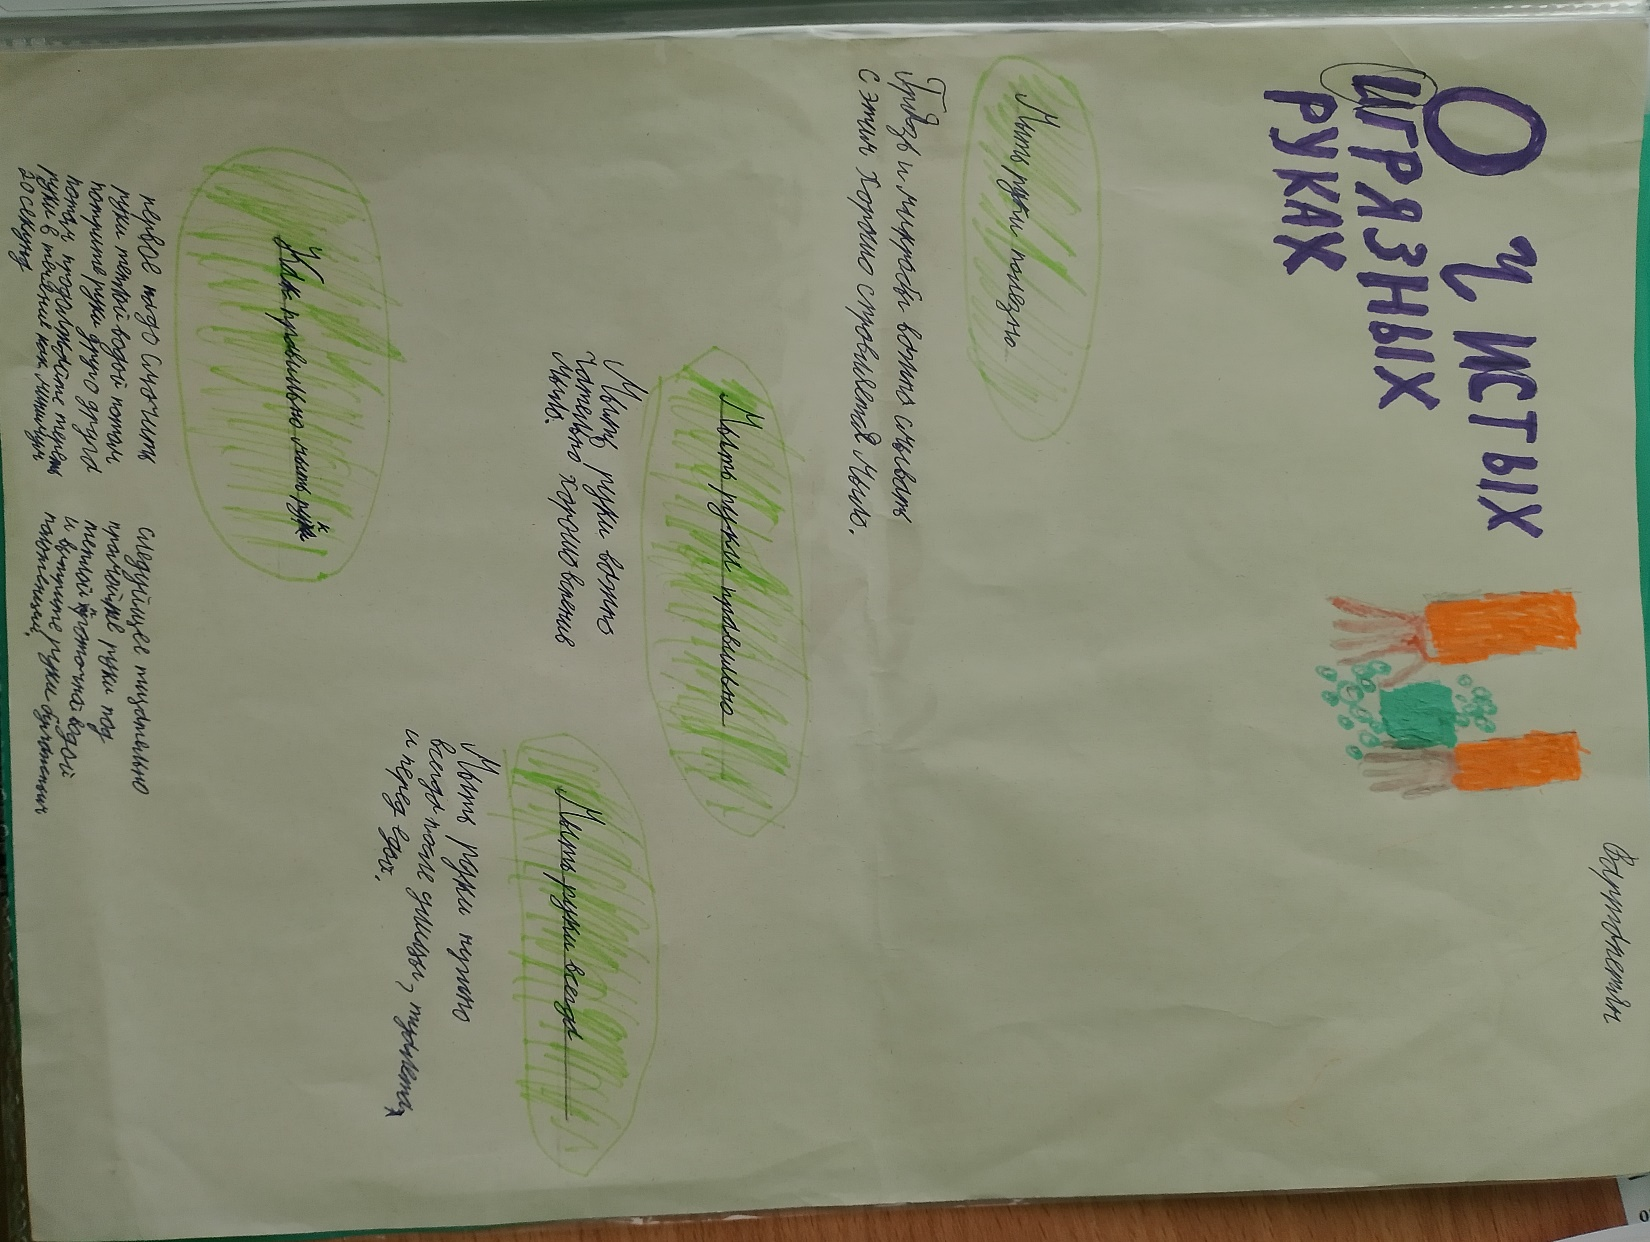 О ЧИСТЫХ
И ГРЯЗНЫХ
РУКАХ
Мыть руки полезно
Грязь и микробы важно смывать
с этим хорошо справляется мыло.
Мыть руки правильно
Мыть руки важно
хорошо
мыло.
Мыть руки всегда
Мыть руки нужно
всегда после улицы, туалета,
и перед едой.
Как правильно мыть рук
первое надо смочить
руки теплой водой потом
потрите руки друг о друга
потом продолжайте тереть
руки в течении как минимум
20 секунд
следуйщее тщательно
руки под
теплой проточной водой
и вытрите руки бумажным
полотенцем.